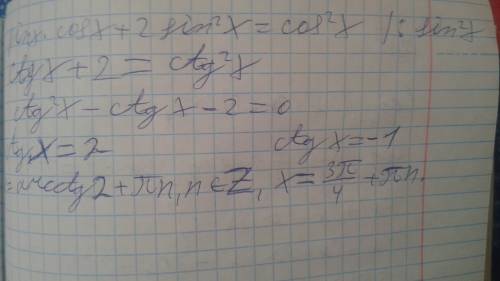 sinx·cosx + 2sin²x = cos²x /: sin²x
ctgx + 2 = ctg²x
ctg²x - ctgx - 2 = 0
ctgx = 2 ctgx = -1
= arcctg2 + πn, n ∈ Z, x = 3π/4 + πn.